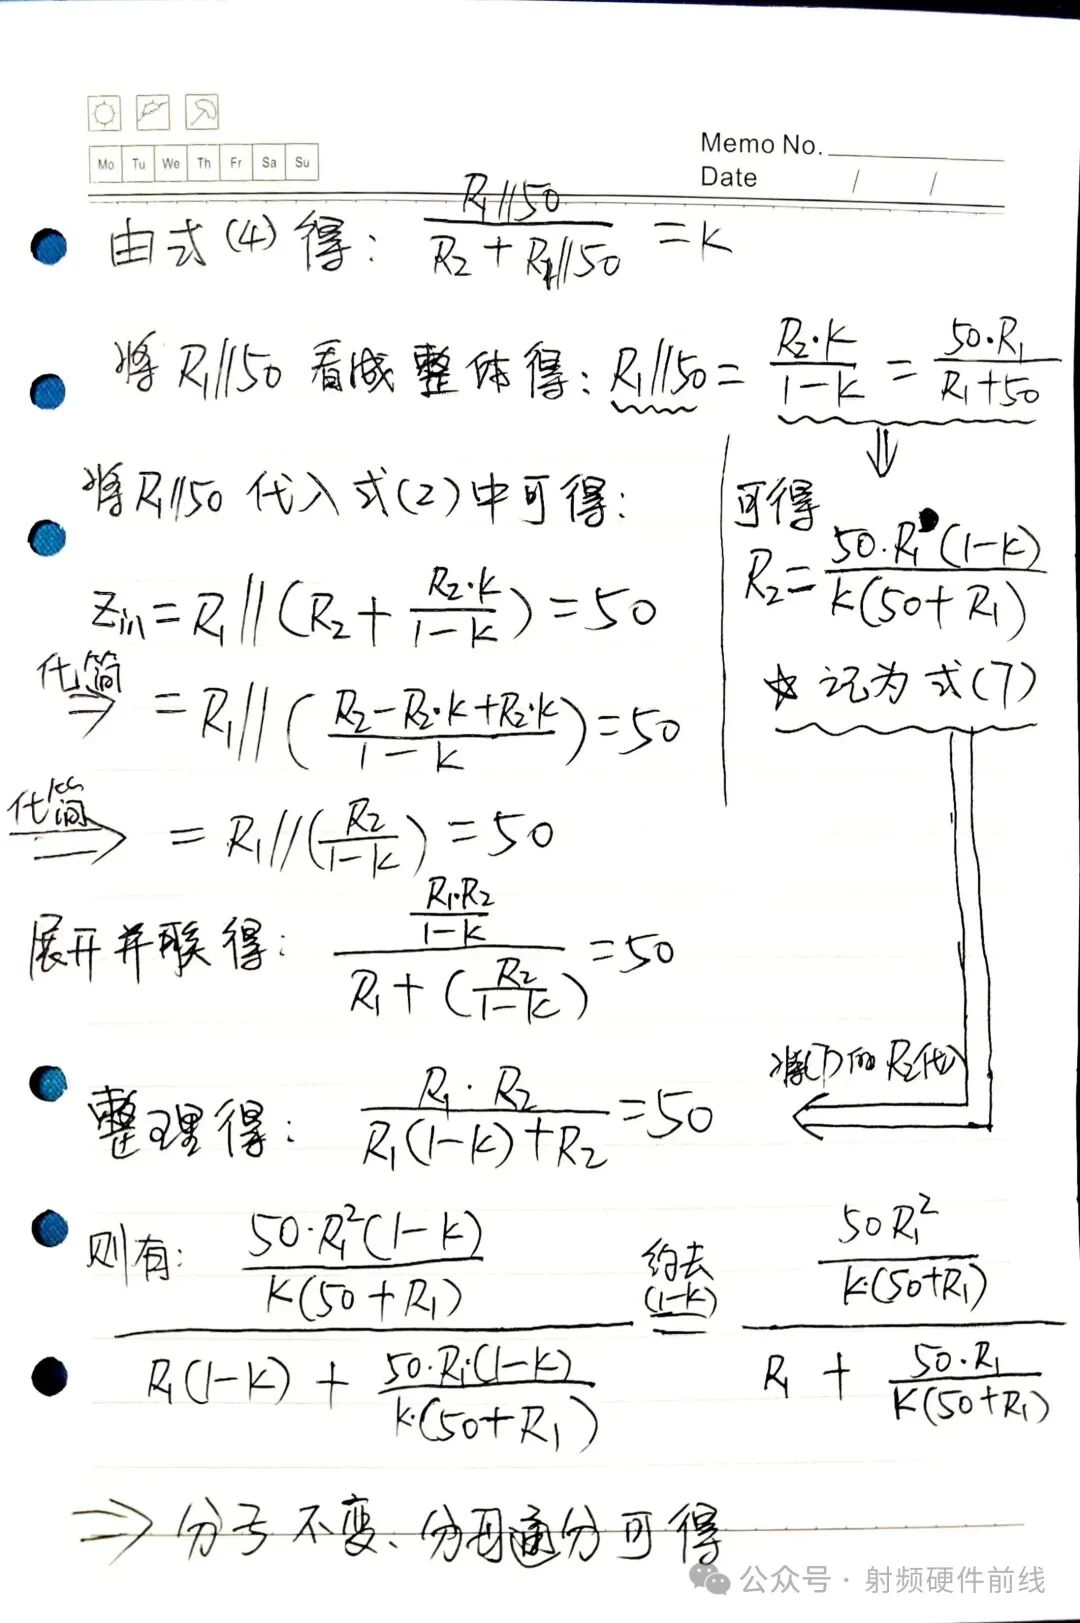 Mo Tu We Th Fr Sa Su
Memo No.
Date / /
由式(4)得: (R₁//50)/(R₂+R₁//50) = K
将R₁//50看成整体得: R₁//50 = (R₂·K)/(1-K) = (50·R₁)/(R₁+50)
⇓
将R₁//50代入式(2)中可得:
可得
R₂ = (50·R₁(1-K))/(K(50+R₁))
☆ 记为式(7)
Zin = R₁//(R₂ + (R₂·K)/(1-K)) = 50
化简 ⇒ = R₁//((R₂-R₂·K+R₂·K)/(1-K)) = 50
化简 ⇒ = R₁//(R₂/(1-K)) = 50
展开并联得: ((R₁·R₂)/(1-K))/(R₁+(R₂/(1-K))) = 50
将(7)的R₂代入
整理得: (R₁·R₂)/(R₁(1-K)+R₂) = 50
则有: ((50·R₁²(1-K))/(K(50+R₁)))/(R₁(1-K)+(50·R₁·(1-K))/(K·(50+R₁))) 约去(1-K) = ((50R₁²)/(K·(50+R₁)))/(R₁+(50·R₁)/(K(50+R₁)))
⇒ 分子不变、分母通分可得
公众号·射频硬件前线